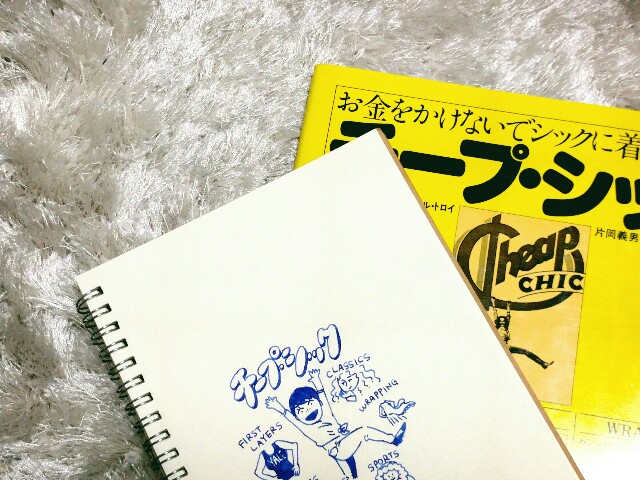 お金をかけないでシックに着
チープ・シッ
ル・トロイ
片岡義男
Cheap
CHIC
WRA
チープ・シック
CLASSICS
WRAPPING
FIRST
LAYERS
YALE
SPORTS